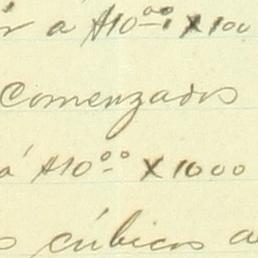 r á $10.00 x 100
comenzados
á $10.00 x 1000
s cúbicos a